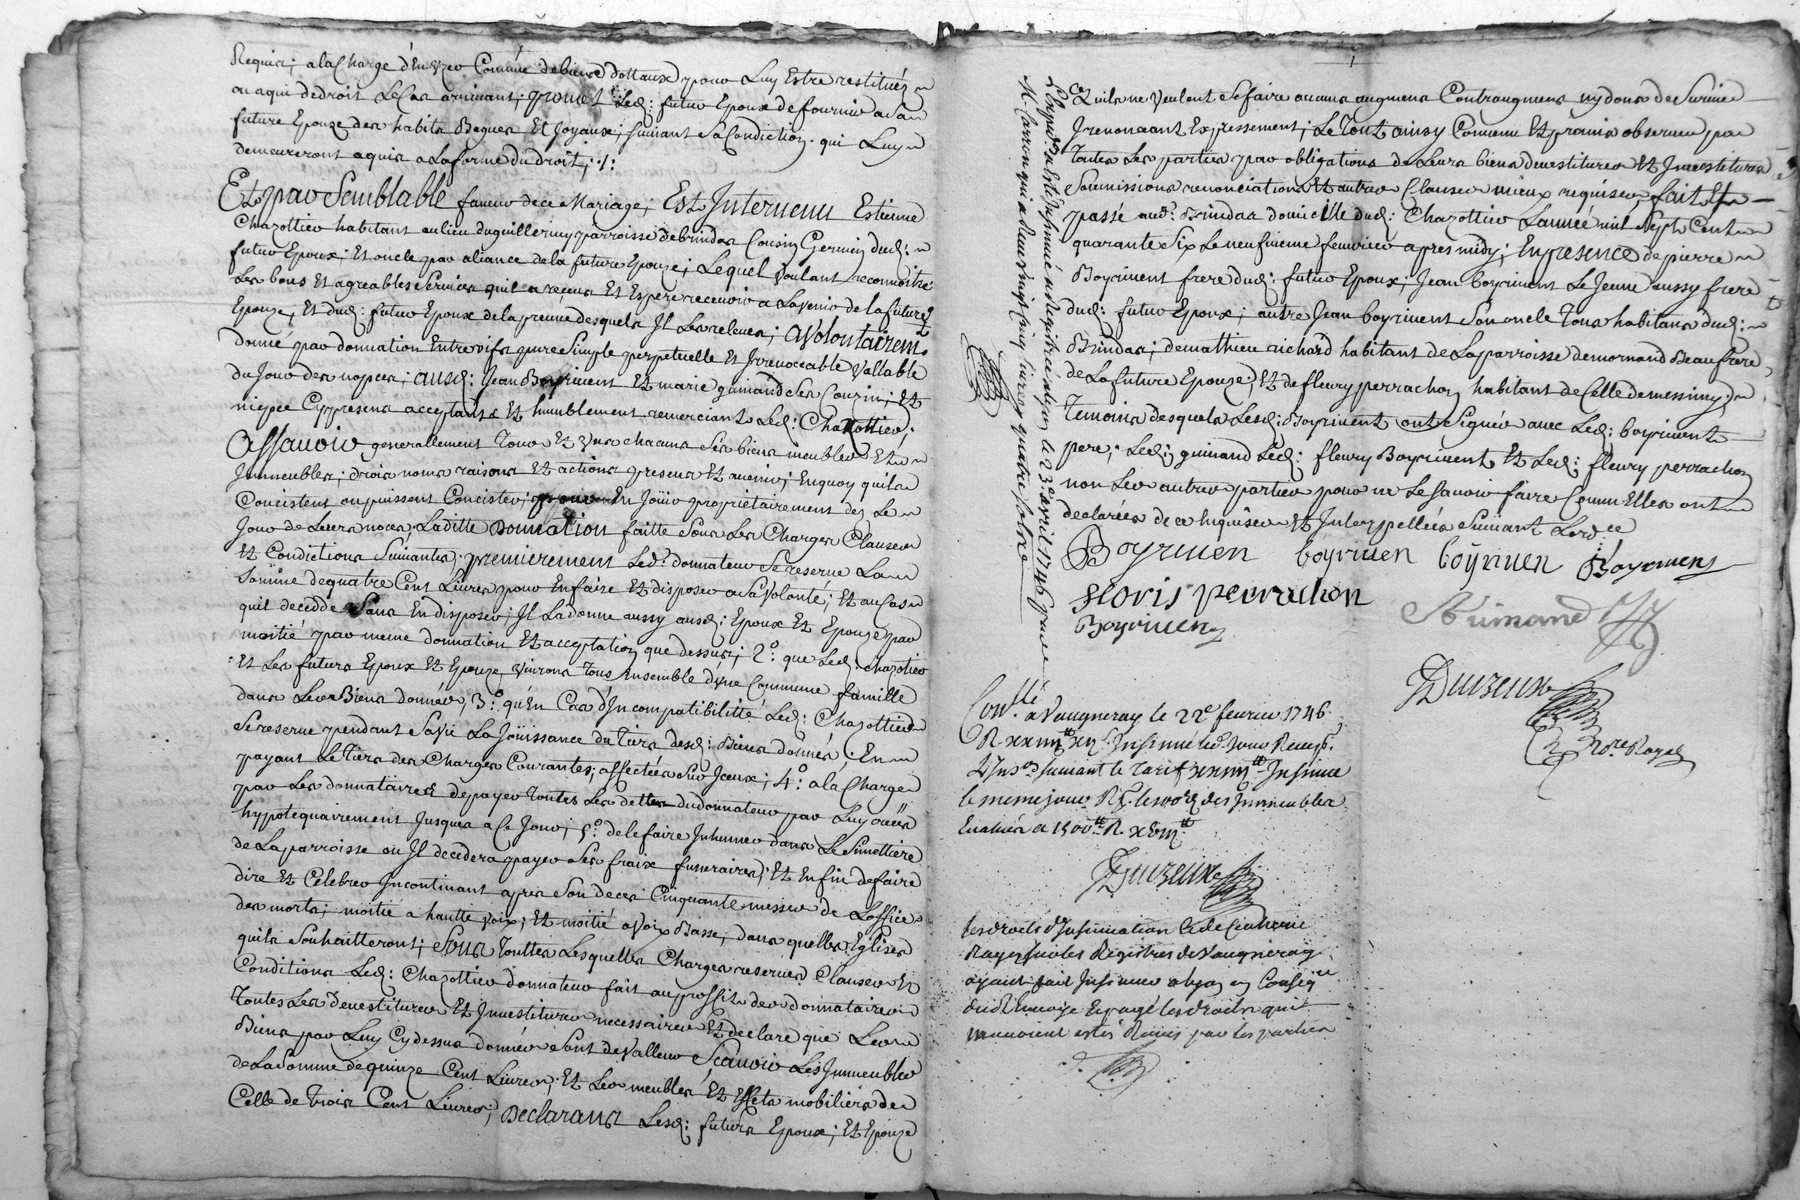 Requis; a la Charge d'En Uzer Comme de biens dottaux pour Luy Estre restitués
ou a qui de droit Le Cas arrivant; promet Led: futur Epoux de fournir a sa
future Epouze des habits Bagues Et Joyaux; suivant sa Condiction qui Luy
demeureront aquis a La forme du droit;
Et par Semblable faveur de ce Mariage; Est Intervenu Estienne
Chazottier habitant au lieu du guillermy parroisse de brindas Cousin Germin dud:
futur Epoux; Et oncle par aliance de la future Epouze; Lequel Voulant reconnoitre
Les bons Et agreables services quil a reçeus Et Espere recevoir a Lavenir de la future
Epouze, Et dud: futur Epoux de la preuve desquels Il Les releve; a Volontairemt
Donné par donnation Entre vifs pure Simple perpetuelle Et Irrevocable Vallable
du Jour des nopces; ausd: Jean Boyriuent Et marie guimand ses Couzin; Et
niepce Cypresens acceptants Et humblement remerciants Led: Chazottier;
Assavoir generallement Tous Et Uns chacuns ses biens meubles Et
Immeubles; drois noms raisons Et actions presens Et avenir; En quoy quils
Concistent ou puissent Concister; pour En Joüir proprietairement dez Le
Jour de Leurs noces, Laditte Donnation faitte Sous Les Charges Clauses
Et Condictions Suivantes; premierement Led: donnateur Se reserve La
Somme de quatre Cent Livres pour En faire Et disposer a sa Volonté; Et au Cas
quil decedde Sans En disposer; Il La donne aussy ausd: Epoux Et Epouze par
moitié par meme donnation Et acceptation que dessus; 2º: que Led: Chazotier
Et Les futurs Epoux Et Epouze vivrons Tous Ensemble d'Une Commune famille
dans Les Biens donnés, 3º: qu'En Cas d'Incompatibilitté Led: Chazottier
Se reserve pendant Sa Vie La Joüissance du Tiers desd: Biens donnés; En
payant Le Tiers des Charges Courantes; affectées Sur Iceux; 4º: a la Charge
par Les donnataires de payer Toutes Les dettes du donnateur par Luy
hypotequairement Jusques a Ce Jour; 5º: de le faire Inhumer dans Le Simettiere
de La parroisse ou Il decedera payer Ses fraix funeraires; Et Enfin de faire
dire Et Celebrer Incontinant apres Son deces Cinquante messes de L'office
des morts; moitié a hautte Voix; Et moitié a Voix Basse; dans quelles Eglises
quils Souhaitteront; Sous Touttes Lesquelles Charges reserves Clauses Et
Conditions Led: Chazottier donnateur fait au proffit des donnataires
Toutes Les devestitures Et Investitures necessaires Et declare que Les
Biens par Luy Cy dessus donnés Sont de Valleur Sçavoir Les Immeubles
de La Somme de quinze Cent Livres; Et Les meubles Et Effets mobiliers de
Celle de Trois Cent Livres; Declarans Lesd: futurs Epoux; Et Epouze
Quils ne Veulent Se faire aucuns augmens Contraugmens ny dons de Survie
y renonceant Expressement; Le Tout ainsy Convenu Et promis observer par
Toutes Les parties par obligations de Leurs biens devestitures Et Investitures
Soumissions renonciations Et autres Clauses mieux requises; fait Et
passé aud: Brindas domicille dud: Chazottier Lannée mil Sept Cent
quarante Six Le neufvieme fevrier apres midy; En presence de pierre
Boyriuent frere dud: futur Epoux, Jean boyriuent Le Jeune aussy frere
dud: futur Epoux; autre Jean boyriuent Son oncle Tous habitans dud:
Brindas; de mathieu richard habitant de La parroisse de mornand Beaufrere
de La future Epouze, Et de fleury perrachon habitant de Celle de messimy;
Temoins desquels Lesd: Boyriuent ont Signés avec Led: boyriuent
pere; Led: guimand Led: fleury Boyriuent Et Led: fleury perrachon
non Les autres parties pour ne Le Savoir faire Comm'Elles ont
declarées de ce Enquises Et Interpellées Suivant Lordce
Boyriuen boyriuen boÿriuen Boyriuen
floris perrachon
Guimand
Boyriuen
Duizeux
Nore Royal
Conllé a Vaugneray le 22e fevrier 1746.
Insinué led: Jour
suivant le Tarif Insinué
le meme jour des Immeubles
Evalués a 1500
Duizeux
les droits d'Insinuation
Registres de Vaugneray
ayant fait Insinuer a Lyon
payé les droits qui
par les parties